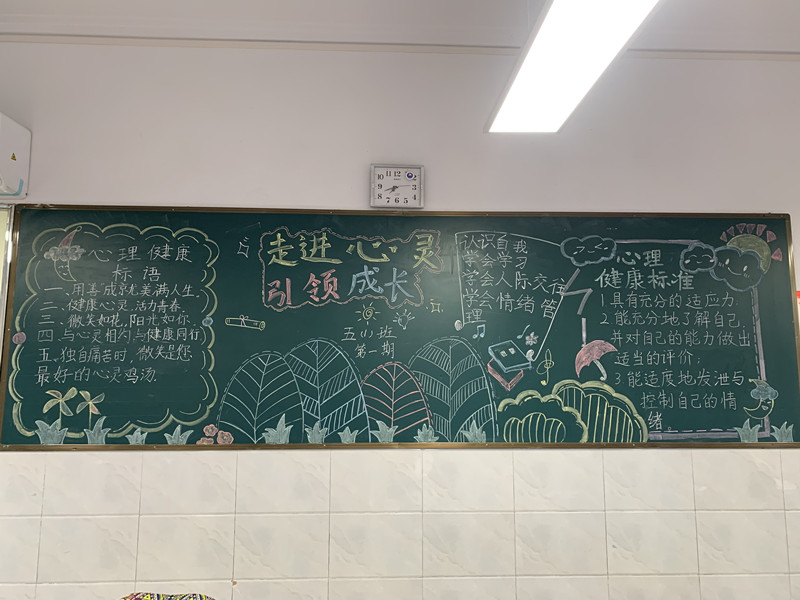 心理健康
标语
一、用善成就美满人生.
二、健康心灵,活力青春.
三、微笑如花,阳光如你.
四.与心灵相约,与健康同行
五.独自痛苦时,微笑是您
最好的心灵鸡汤.
走进心灵
引领成长
五(1)班
第一期
认识自我
学会学习
学会人际交往
学会情绪管
理
心理
健康标准
1.具有充分的适应力
2.能充分地了解自己,
并对自己的能力做出
适当的评价,
3.能适度地发泄与
控制自己的情
绪.